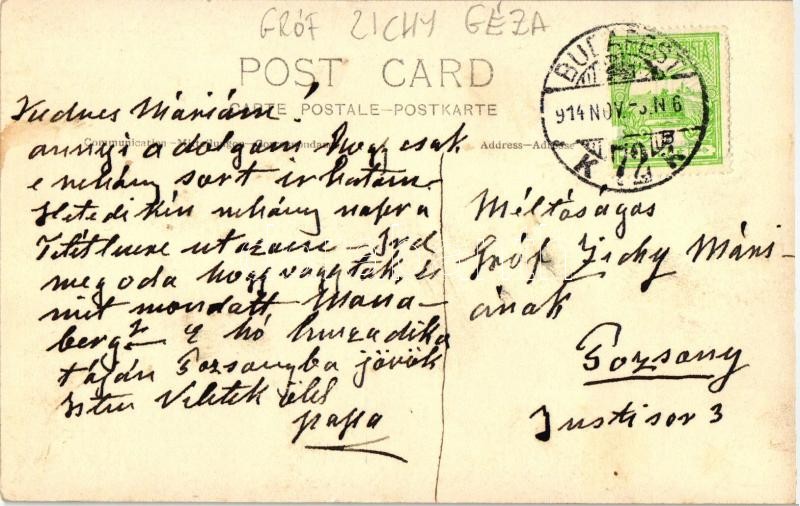 GRÓF ZICHY GÉZA
POST CARD
CARTE POSTALE-POSTKARTE
Address-
BUDAPEST
914 NOV.
72
K K
Kedves Máriám!
annyi a dolgom hogy csak
e nehány sort irhatom
Hetedikén nehány napra
Tetétlenre utazom - Ird
meg oda hogy vagytok és
mit mondott Mana-
berg? E hó huszadika
táján Pozsonyba jövök
Isten Veletek ölel
papa
Méltóságos
Gróf Zichy Mári-
ának
Pozsony
Justisor 3